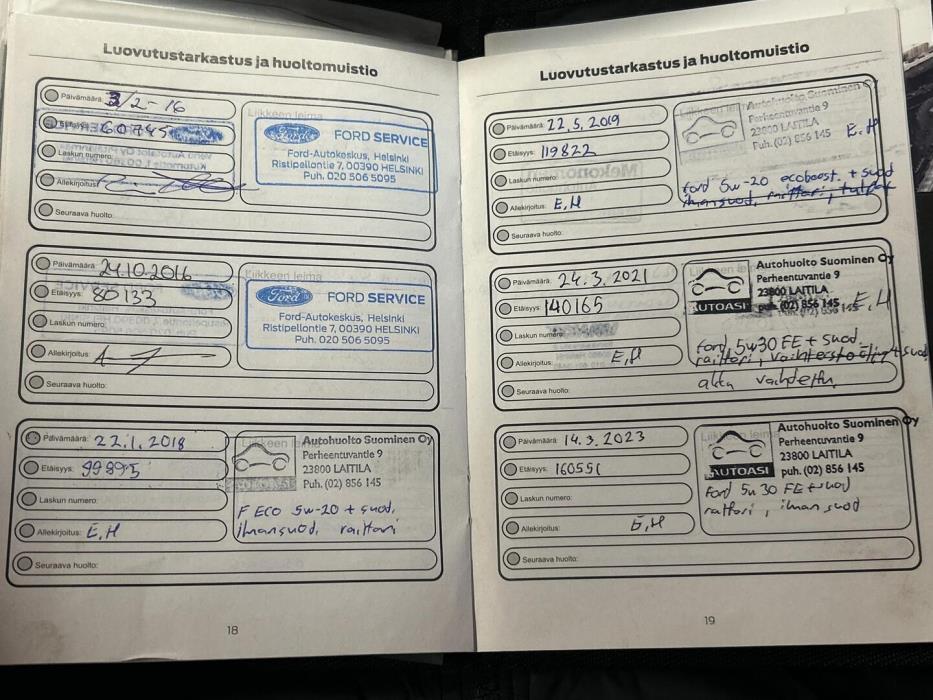 Luovutustarkastus ja huoltomuistio
Päivämäärä: 3/2-16
Etäisyys: 60745
Laskun numero:
Allekirjoitus:
Seuraava huolto:
Liikkeen leima
Ford
FORD SERVICE
Ford-Autokeskus, Helsinki
Ristipellontie 7, 00390 HELSINKI
Puh. 020 506 5095
Päivämäärä: 24.10.2016
Etäisyys: 80133
Laskun numero:
Allekirjoitus:
Seuraava huolto:
Liikkeen leima
Ford
FORD SERVICE
Ford-Autokeskus, Helsinki
Ristipellontie 7, 00390 HELSINKI
Puh. 020 506 5095
Päivämäärä: 22.1.2018
Etäisyys: 99895
Laskun numero:
Allekirjoitus: E,H
Seuraava huolto:
Liikkeen leima
Autohuolto Suominen Oy
Perheentuvantie 9
23800 LAITILA
Puh. (02) 856 145
F ECO 5w-20 + suod,
ilmansuod, raittari
18
Luovutustarkastus ja huoltomuistio
Päivämäärä: 22.5.2019
Etäisyys: 119822
Laskun numero:
Allekirjoitus: E,H
Seuraava huolto:
Liikkeen leima
Autohuolto Suominen Oy
Perheentuvantie 9
23800 LAITILA
Puh. (02) 856 145 E,H
Ford 5w-20 ecoboost. + suod
ilmansuod, raittari, tulpat
Päivämäärä: 24.3.2021
Etäisyys: 140165
Laskun numero:
Allekirjoitus: E,H
Seuraava huolto:
AUTOASI
Autohuolto Suominen Oy
Perheentuvantie 9
23800 LAITILA
puh. (02) 856 145 E,H
Ford 5w30 FE + suod
raittari, vaihteistoöljyt + suod
akku vaihdettu
Päivämäärä: 14.3.2023
Etäisyys: 160551
Laskun numero:
Allekirjoitus: E,H
Seuraava huolto:
AUTOASI
Autohuolto Suominen Oy
Perheentuvantie 9
23800 LAITILA
puh. (02) 856 145
Ford 5w30 FE + suod
raittari, ilmansuod
19